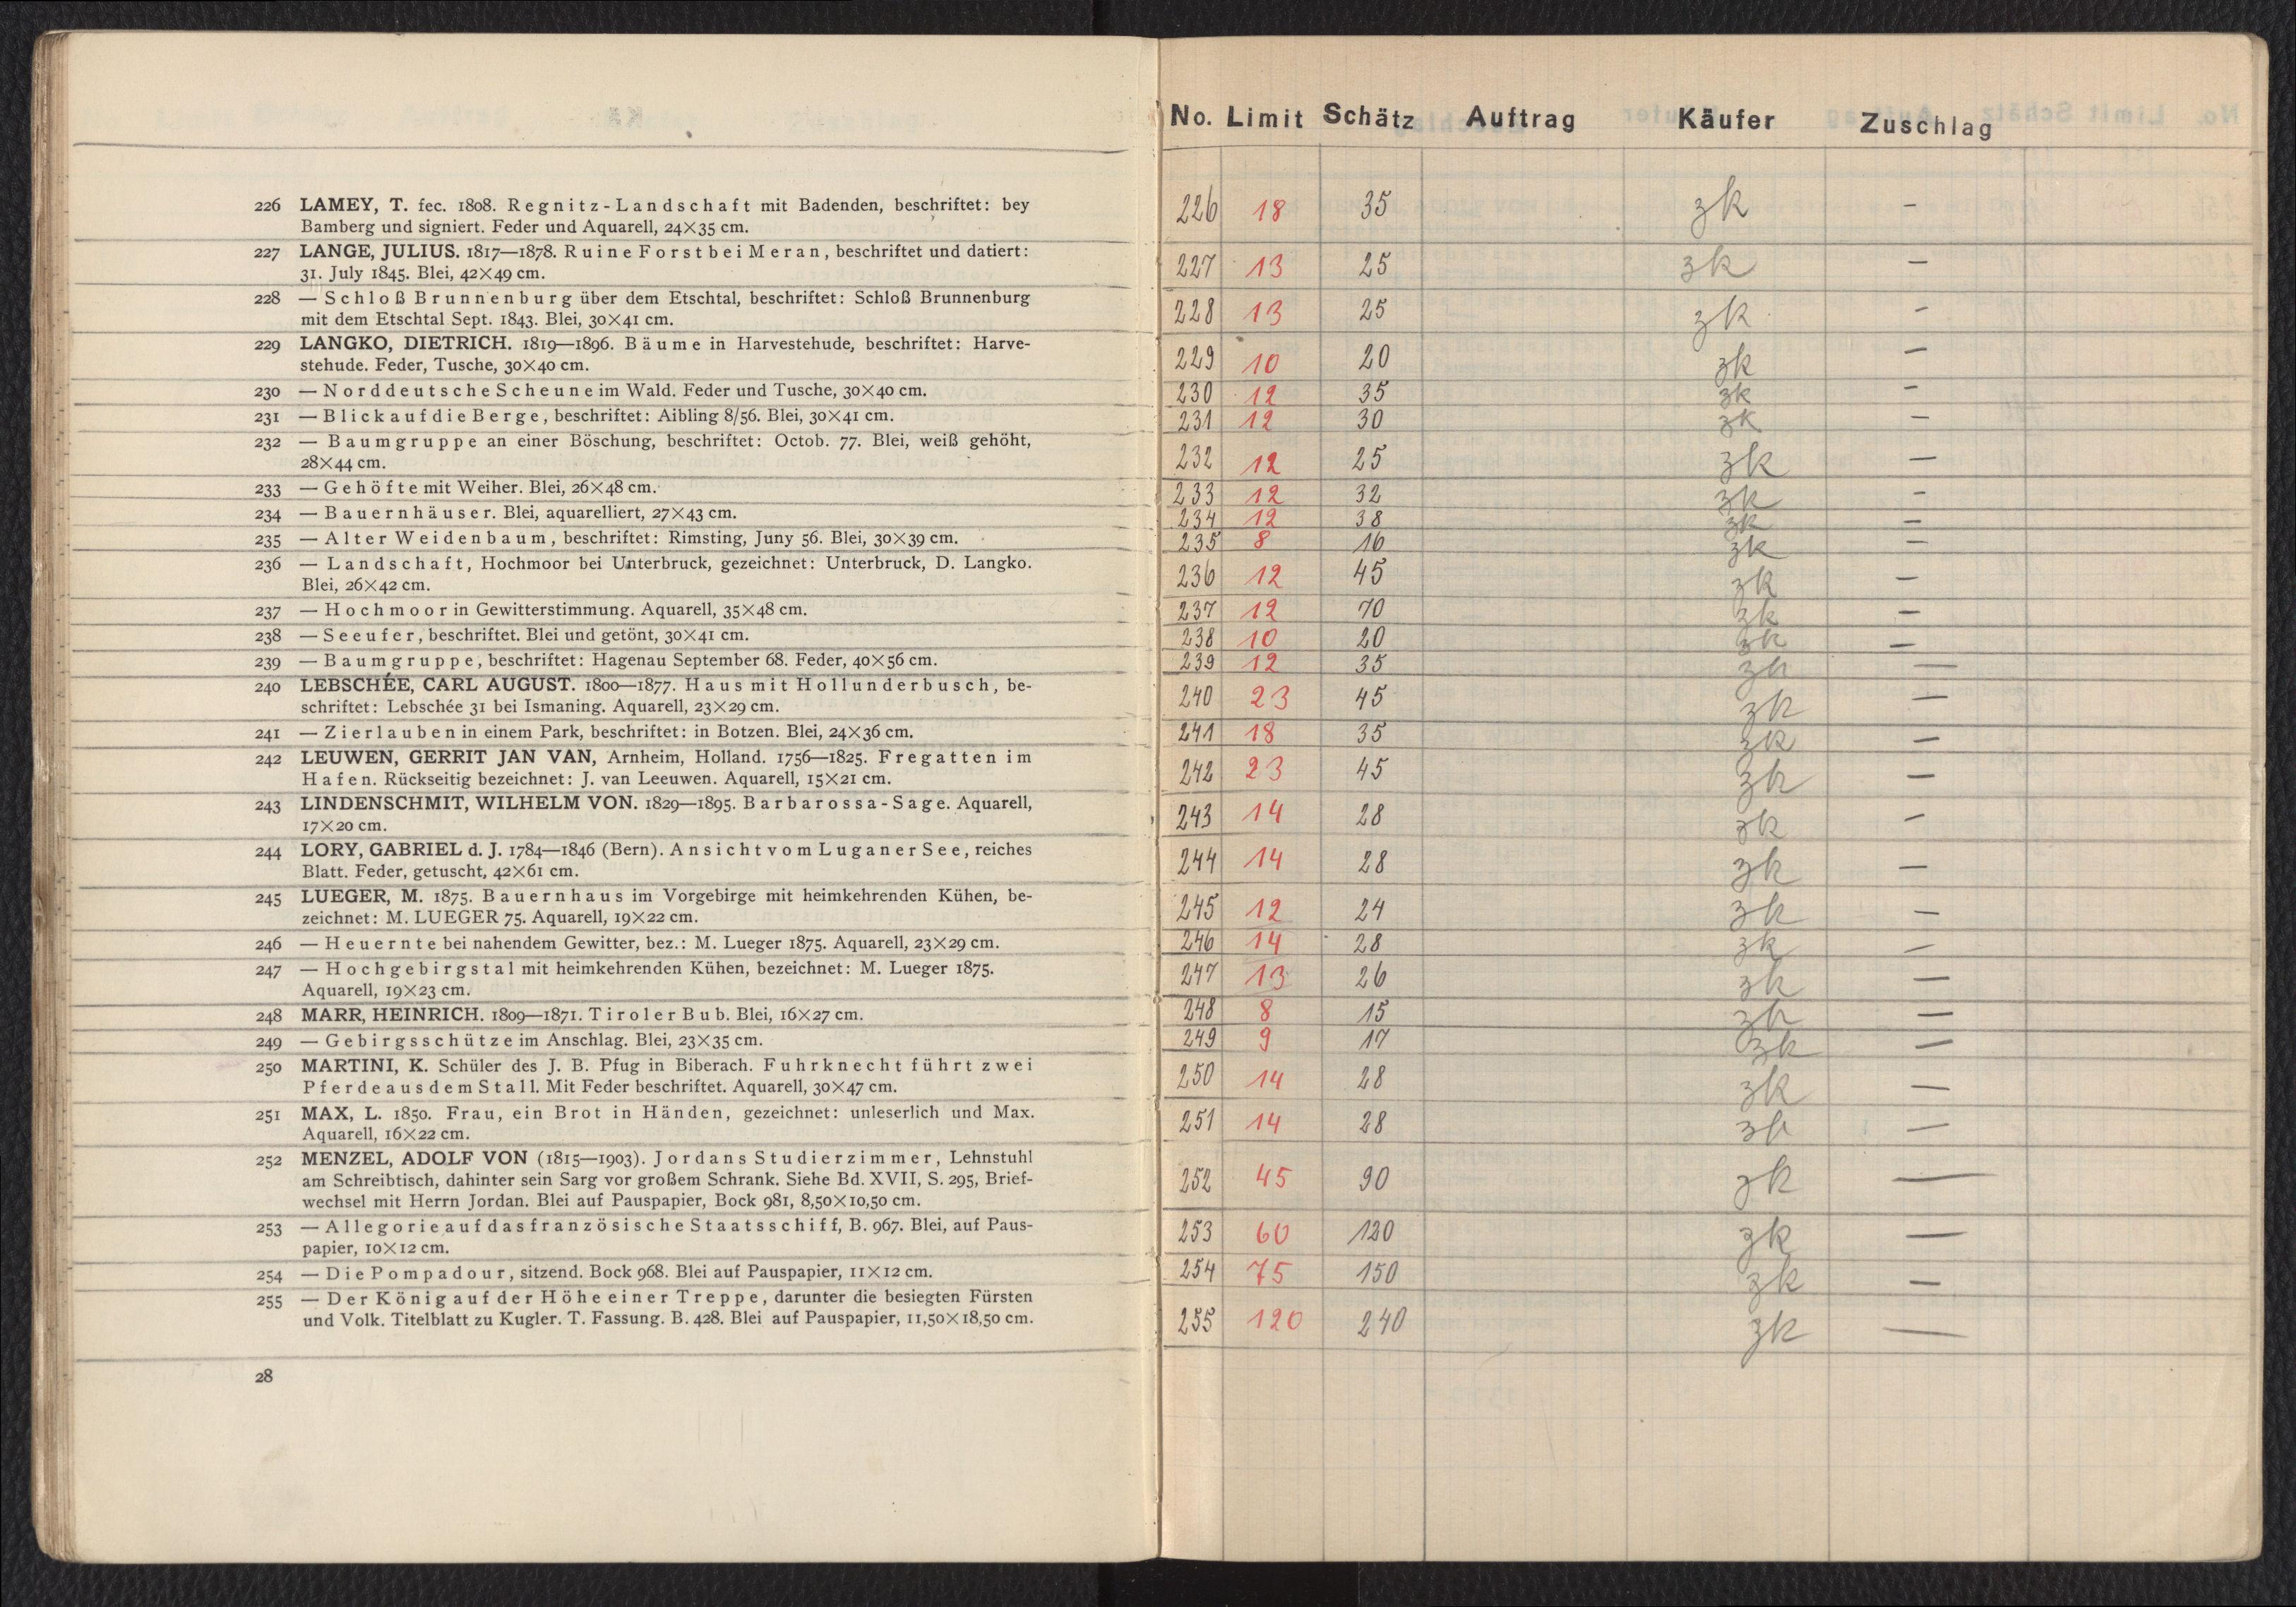 226 LAMEY, T. fec. 1808. Regnitz-Landschaft mit Badenden, beschriftet: bey
Bamberg und signiert. Feder und Aquarell, 24×35 cm.
227 LANGE, JULIUS. 1817—1878. Ruine Forst bei Meran, beschriftet und datiert:
31. July 1845. Blei, 42×49 cm.
228 — Schloß Brunnenburg über dem Etschtal, beschriftet: Schloß Brunnenburg
mit dem Etschtal Sept. 1843. Blei, 30×41 cm.
229 LANGKO, DIETRICH. 1819—1896. Bäume in Harvestehude, beschriftet: Harve-
stehude. Feder, Tusche, 30×40 cm.
230 — Norddeutsche Scheune im Wald. Feder und Tusche, 30×40 cm.
231 — Blick auf die Berge, beschriftet: Aibling 8/56. Blei, 30×41 cm.
232 — Baumgruppe an einer Böschung, beschriftet: Octob. 77. Blei, weiß gehöht,
28×44 cm.
233 — Gehöfte mit Weiher. Blei, 26×48 cm.
234 — Bauernhäuser. Blei, aquarelliert, 27×43 cm.
235 — Alter Weidenbaum, beschriftet: Rimsting, Juny 56. Blei, 30×39 cm.
236 — Landschaft, Hochmoor bei Unterbruck, gezeichnet: Unterbruck, D. Langko.
Blei, 26×42 cm.
237 — Hochmoor in Gewitterstimmung. Aquarell, 35×48 cm.
238 — Seeufer, beschriftet. Blei und getönt, 30×41 cm.
239 — Baumgruppe, beschriftet: Hagenau September 68. Feder, 40×56 cm.
240 LEBSCHÉE, CARL AUGUST. 1800—1877. Haus mit Hollunderbusch, be-
schriftet: Lebschée 31 bei Ismaning. Aquarell, 23×29 cm.
241 — Zierlauben in einem Park, beschriftet: in Botzen. Blei, 24×36 cm.
242 LEUWEN, GERRIT JAN VAN, Arnheim, Holland. 1756—1825. Fregatten im
Hafen. Rückseitig bezeichnet: J. van Leeuwen. Aquarell, 15×21 cm.
243 LINDENSCHMIT, WILHELM VON. 1829—1895. Barbarossa-Sage. Aquarell,
17×20 cm.
244 LORY, GABRIEL d. J. 1784—1846 (Bern). Ansicht vom Luganer See, reiches
Blatt. Feder, getuscht, 42×61 cm.
245 LUEGER, M. 1875. Bauernhaus im Vorgebirge mit heimkehrenden Kühen, be-
zeichnet: M. LUEGER 75. Aquarell, 19×22 cm.
246 — Heuernte bei nahendem Gewitter, bez.: M. Lueger 1875. Aquarell, 23×29 cm.
247 — Hochgebirgstal mit heimkehrenden Kühen, bezeichnet: M. Lueger 1875.
Aquarell, 19×23 cm.
248 MARR, HEINRICH. 1809—1871. Tiroler Bub. Blei, 16×27 cm.
249 — Gebirgsschütze im Anschlag. Blei, 23×35 cm.
250 MARTINI, K. Schüler des J. B. Pfug in Biberach. Fuhrknecht führt zwei
Pferde aus dem Stall. Mit Feder beschriftet. Aquarell, 30×47 cm.
251 MAX, L. 1850. Frau, ein Brot in Händen, gezeichnet: unleserlich und Max.
Aquarell, 16×22 cm.
252 MENZEL, ADOLF VON (1815—1903). Jordans Studierzimmer, Lehnstuhl
am Schreibtisch, dahinter sein Sarg vor großem Schrank. Siehe Bd. XVII, S. 295, Brief-
wechsel mit Herrn Jordan. Blei auf Pauspapier, Bock 981, 8,50×10,50 cm.
253 — Allegorie auf das französische Staatsschiff, B. 967. Blei, auf Paus-
papier, 10×12 cm.
254 — Die Pompadour, sitzend. Bock 968. Blei auf Pauspapier, 11×12 cm.
255 — Der König auf der Höhe einer Treppe, darunter die besiegten Fürsten
und Volk. Titelblatt zu Kugler. T. Fassung. B. 428. Blei auf Pauspapier, 11,50×18,50 cm.
28
No. Limit Schätz Auftrag Käufer Zuschlag
226 18 35 zk –
227 13 25 zk –
228 13 25 zk –
229 10 20 zk –
230 12 35 zk –
231 12 30 zk –
232 12 25 zk –
233 12 32 zk –
234 12 38 zk –
235 8 16 zk –
236 12 45 zk –
237 12 70 zk –
238 10 20 zk –
239 12 35 zk –
240 23 45 zk –
241 18 35 zk –
242 23 45 zk –
243 14 28 zk –
244 14 28 zk –
245 12 24 zk –
246 14 28 zk –
247 13 26 zk –
248 8 15 zk –
249 9 17 zk –
250 14 28 zk –
251 14 28 zk –
252 45 90 zk –
253 60 120 zk –
254 75 150 zk –
255 120 240 zk –